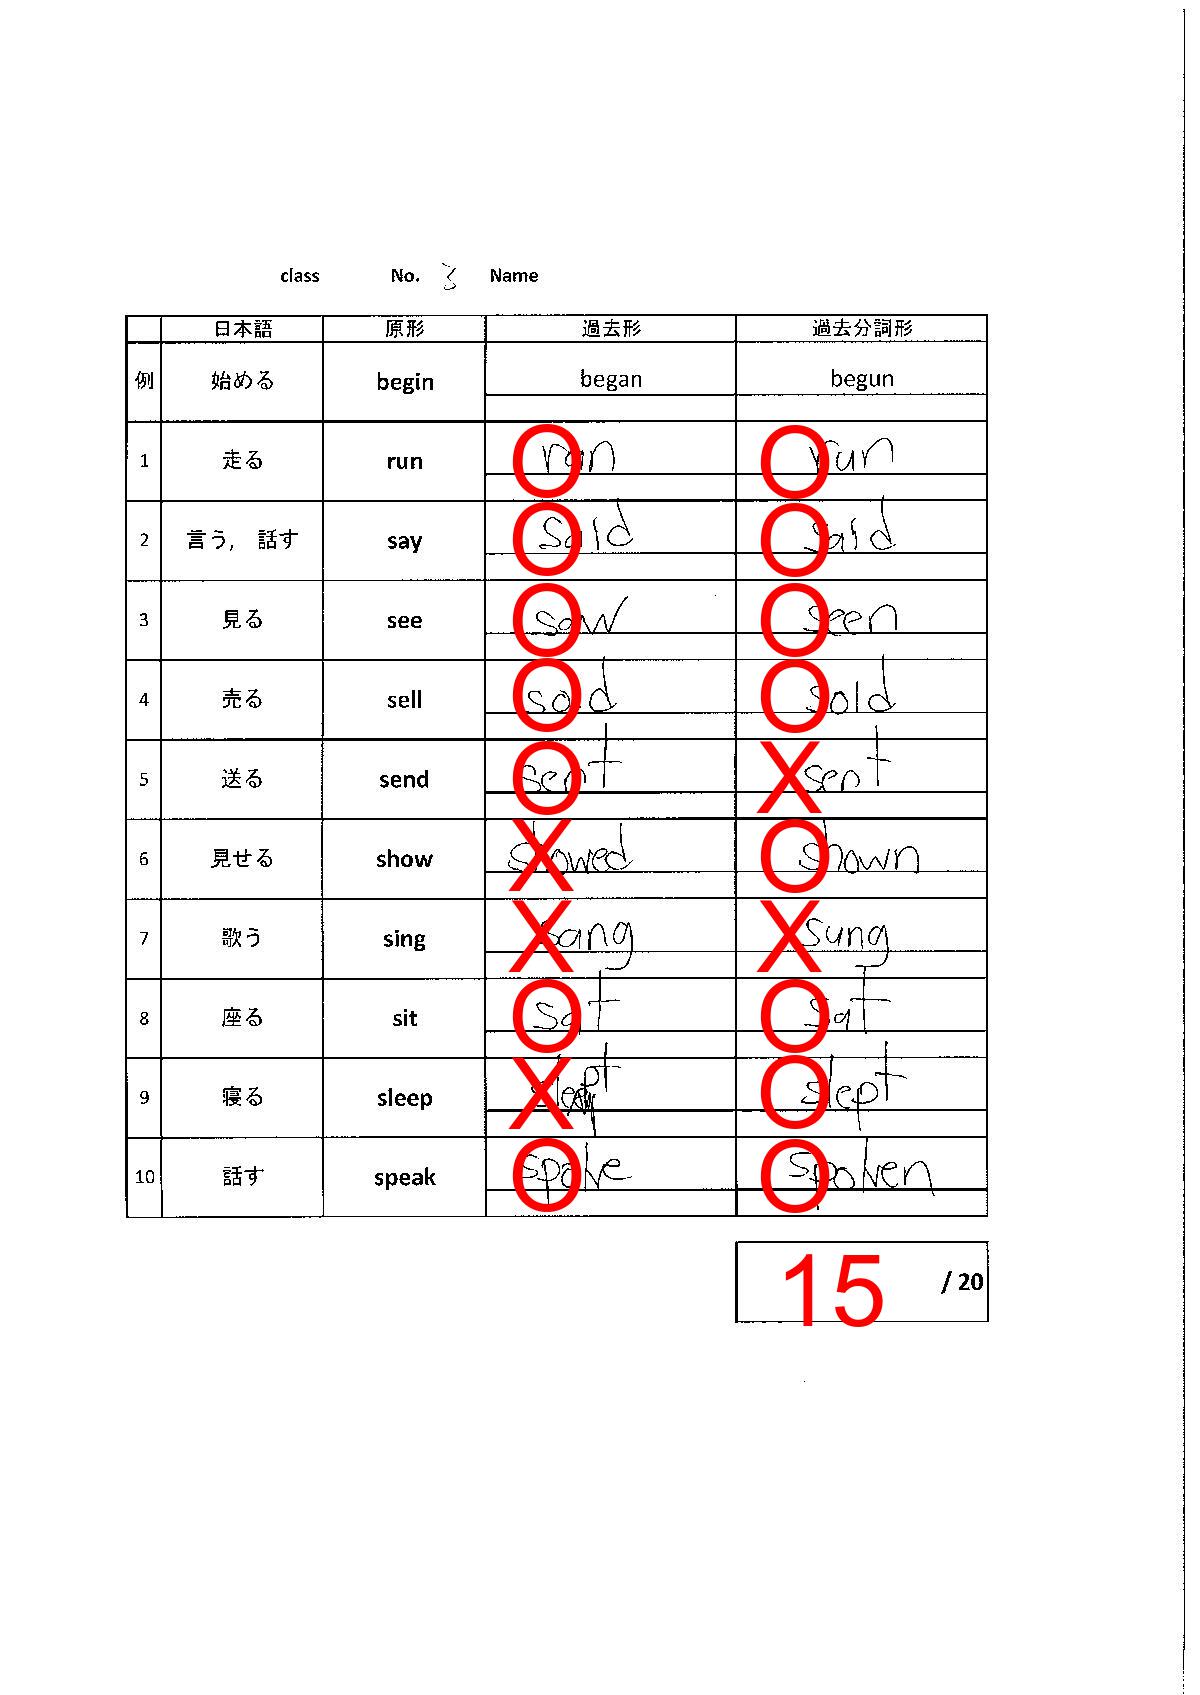 class No. 3 Name
日本語 原形 過去形 過去分詞形
例 始める begin began begun
1 走る run O ran O run
2 言う, 話す say O said O said
3 見る see O saw O seen
4 売る sell O sold O sold
5 送る send O sent X sent
6 見せる show X showed O shown
7 歌う sing X sang X sung
8 座る sit O sat O sat
9 寝る sleep X slept O slept
10 話す speak O spoke O spoken
15 / 20